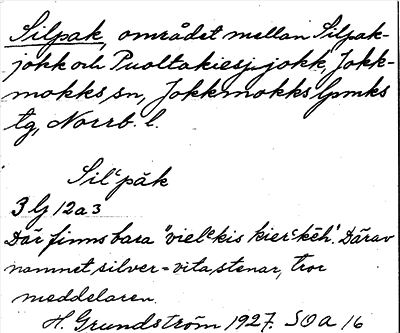 Silpak, området mellan Silpak-
jokk och Puoltakiesj.jokk, Jokk-
mokks sn, Jokkmokks lpmks
tg, Norrb. l.
Silᶜpåk
3 lj 12 a 3
Där finns bara "vielᵉkis kierᶜkēh". Därav
namnet silver = vita stenar, tror
meddelaren.
H. Grundström 1927. SOA 16